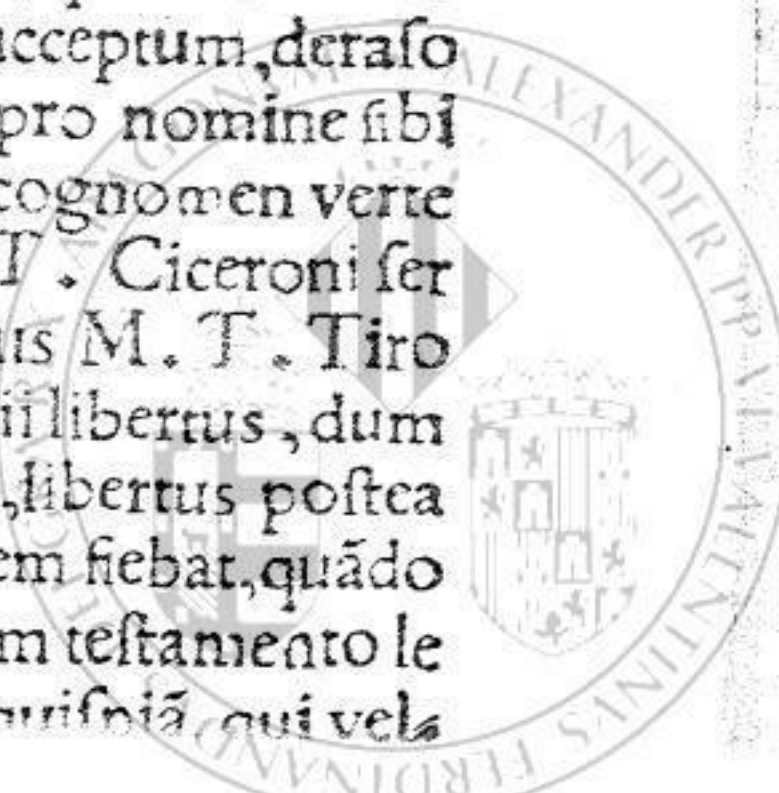 acceptum,deraſo
pro nomine ſibi
cognomen verte
T. Ciceroni ſer
us M. T. Tiro
ii libertus, dum
,libertus poſtea
em fiebat,quãdo
m teſtamento le
quiſpiã qui vel
ALEXANDER PP VI VALENTINVS FERDINANDVS